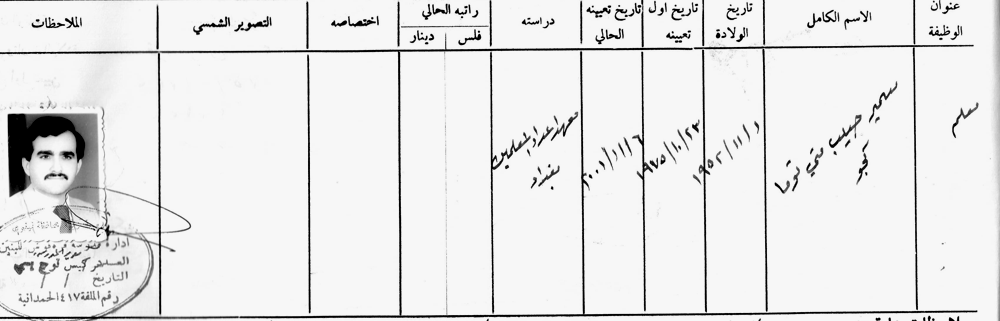 عنوان الوظيفة
الاسم الكامل
تاريخ الولادة
تاريخ اول تعيينه
تاريخ تعيينه الحالي
دراسته
راتبه الحالي
فلس
دينار
اختصاصه
التصوير الشمسي
الملاحظات
معلم
سمير حبيب متي توما
١٩٥٢/١١/١
١٩٧٥/١٠/٢٣
٢٠٠١/١١/٦
معهد اعداد المعلمين
بغداد
ادارة
للبنين
التاريخ / /
رقم الملفة ٤١٧ الحمدانية